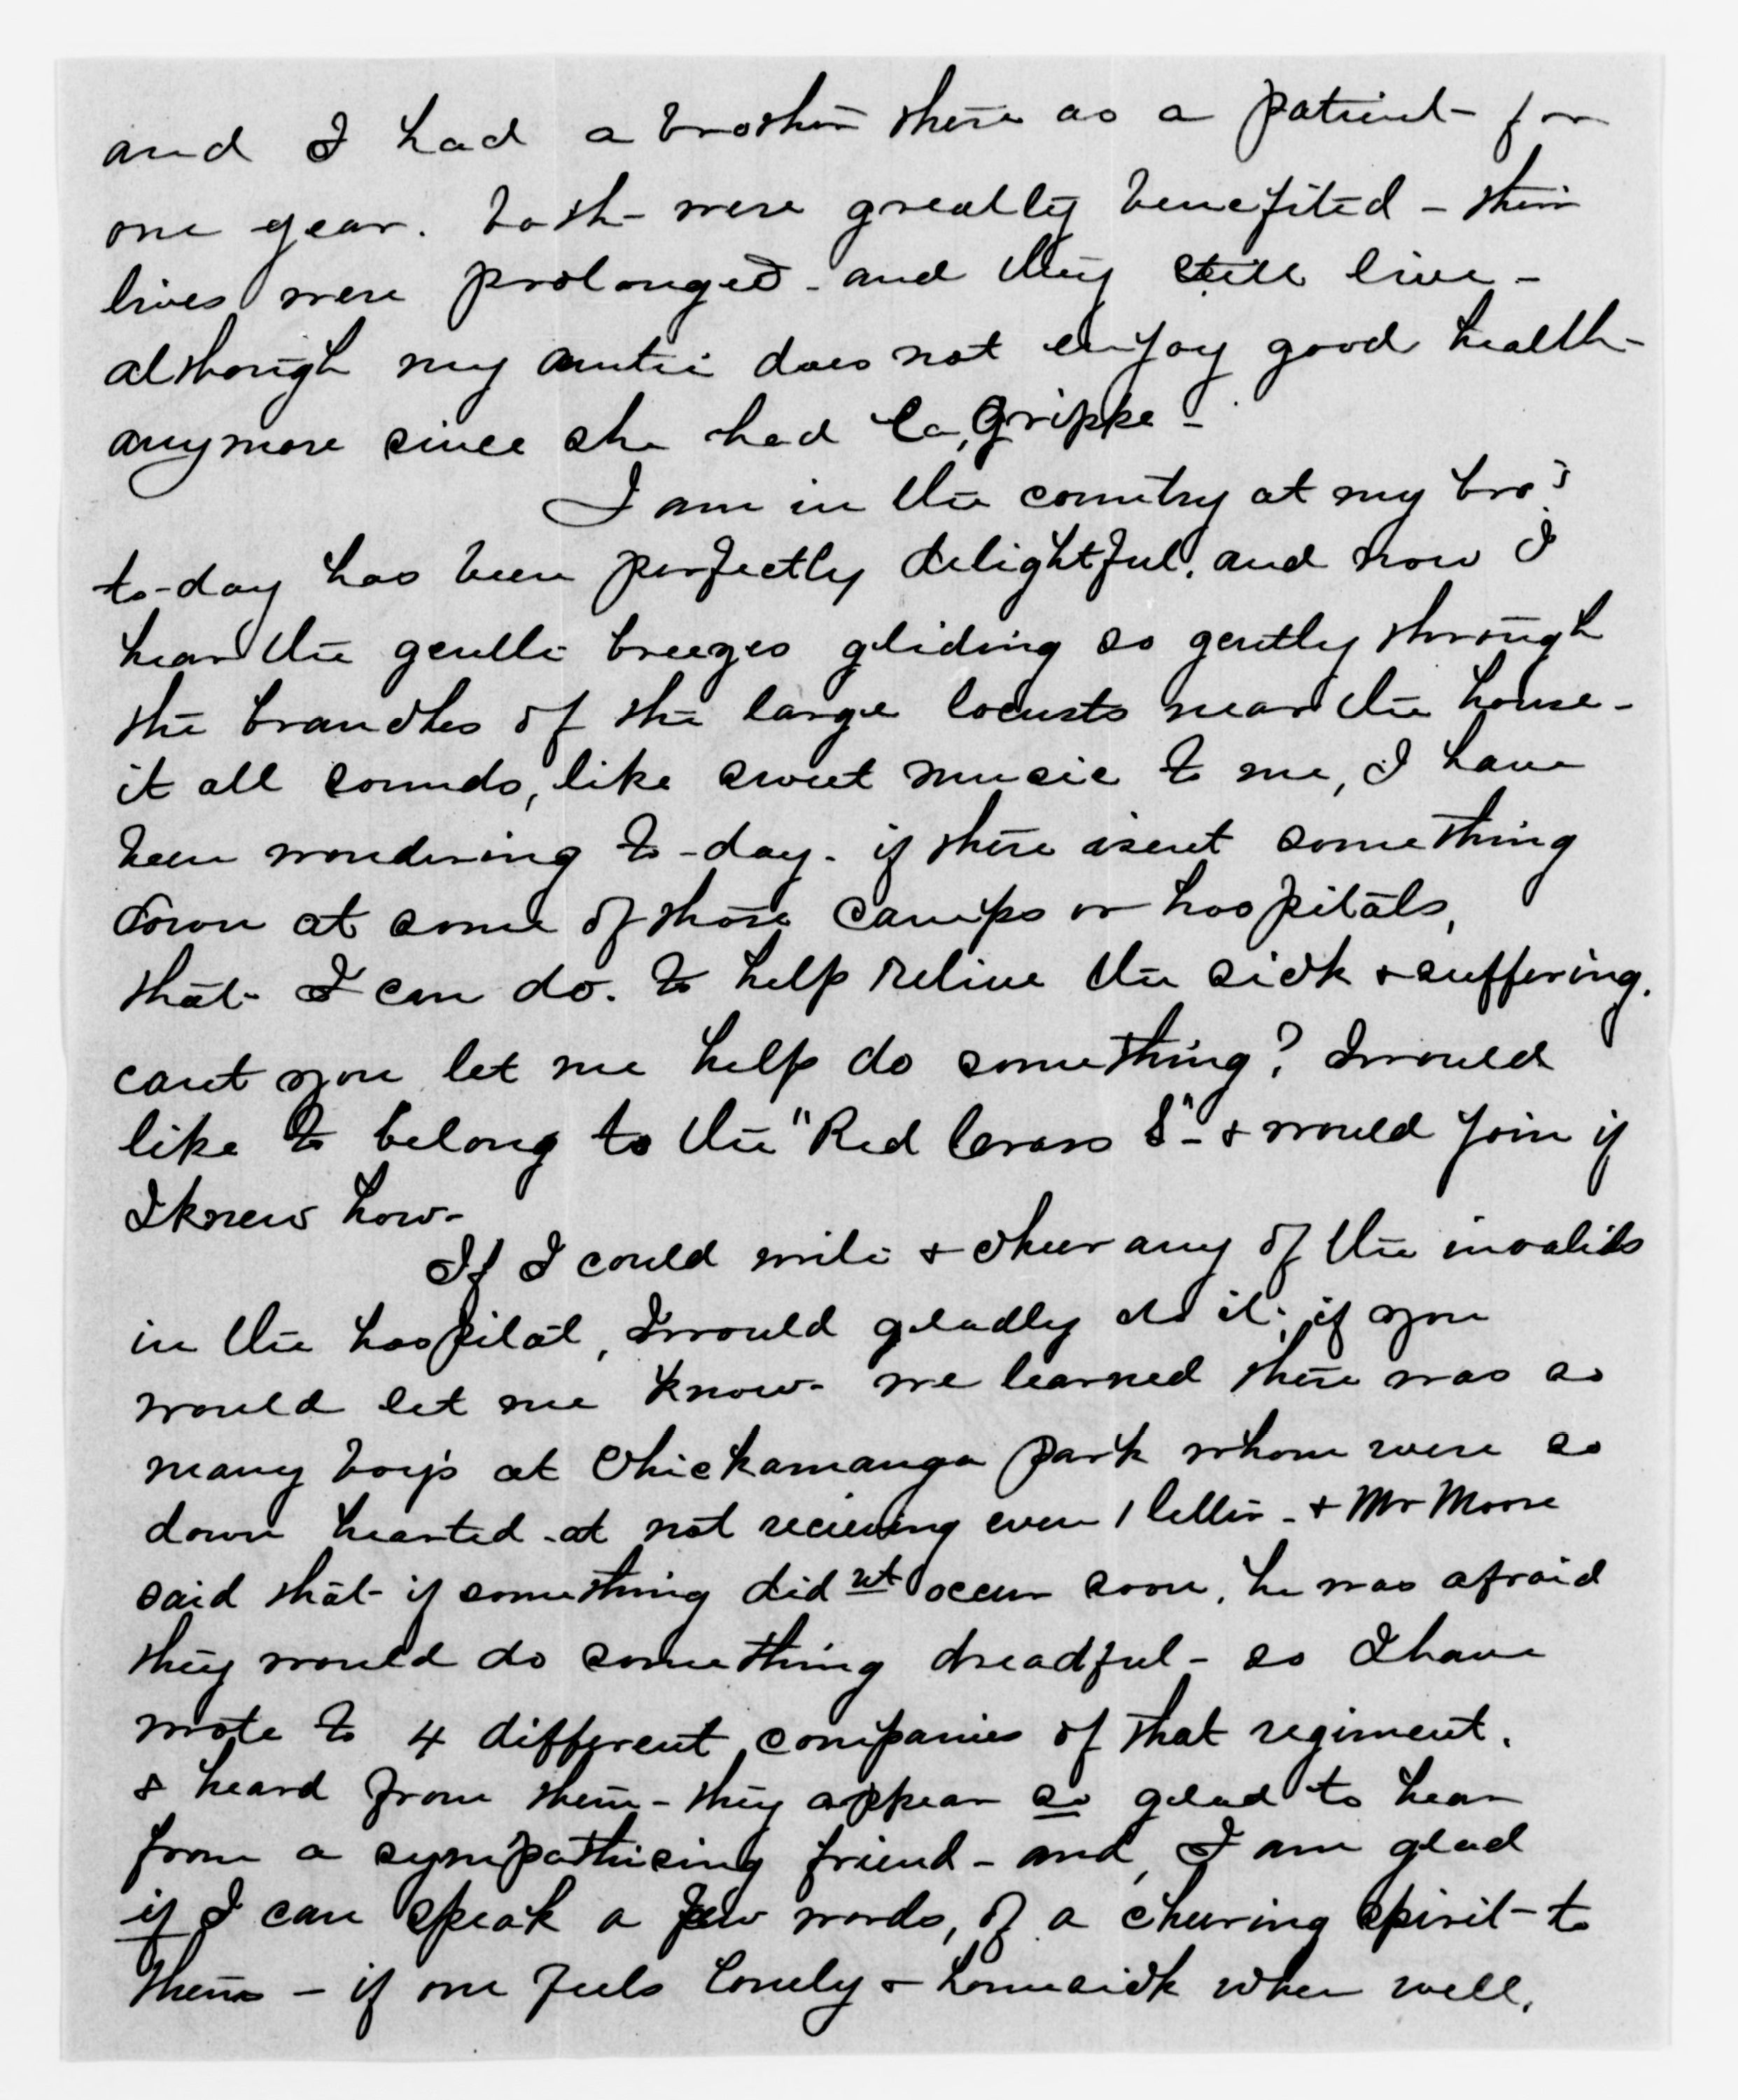 and I had a brother there as a patient - for
one year. both - were greatly benefited - their
lives were prolonged - and they still live -
although my auntie does not enjoy good health -
anymore since she had La, Grippe -
I am in the country at my bro's
to-day has been perfectly delightful, and now I
hear the gentle breezes gliding so gently through
the branches of the large locusts near the house -
it all sounds, like sweet music to me, I have
been wondering to-day - if there isent something
down at some of those camps or hospitals,
that - I can do. to help relive the sick & suffering.
cant you let me help do something? I would
like to belong to the "Red Cross S" - & would join if
I knew how -
If I could write & cheer any of the invalids
in the hospital, I would gladly do it; if you
would let me know - we learned there was so
many boys at Chickamauga park whom were so
down hearted - at not recieving even 1 letter - & Mr Moore
said that - if something did nt occur soon, he was afraid
they would do something dreadful - so I have
wrote to 4 different companies of that regiment.
& heard from them - they appear so glad to hear
from a sympathising friend - and, I am glad
if I can speak a few words, of a cheering spirit - to
them - if one feels lonely & homesick when well,